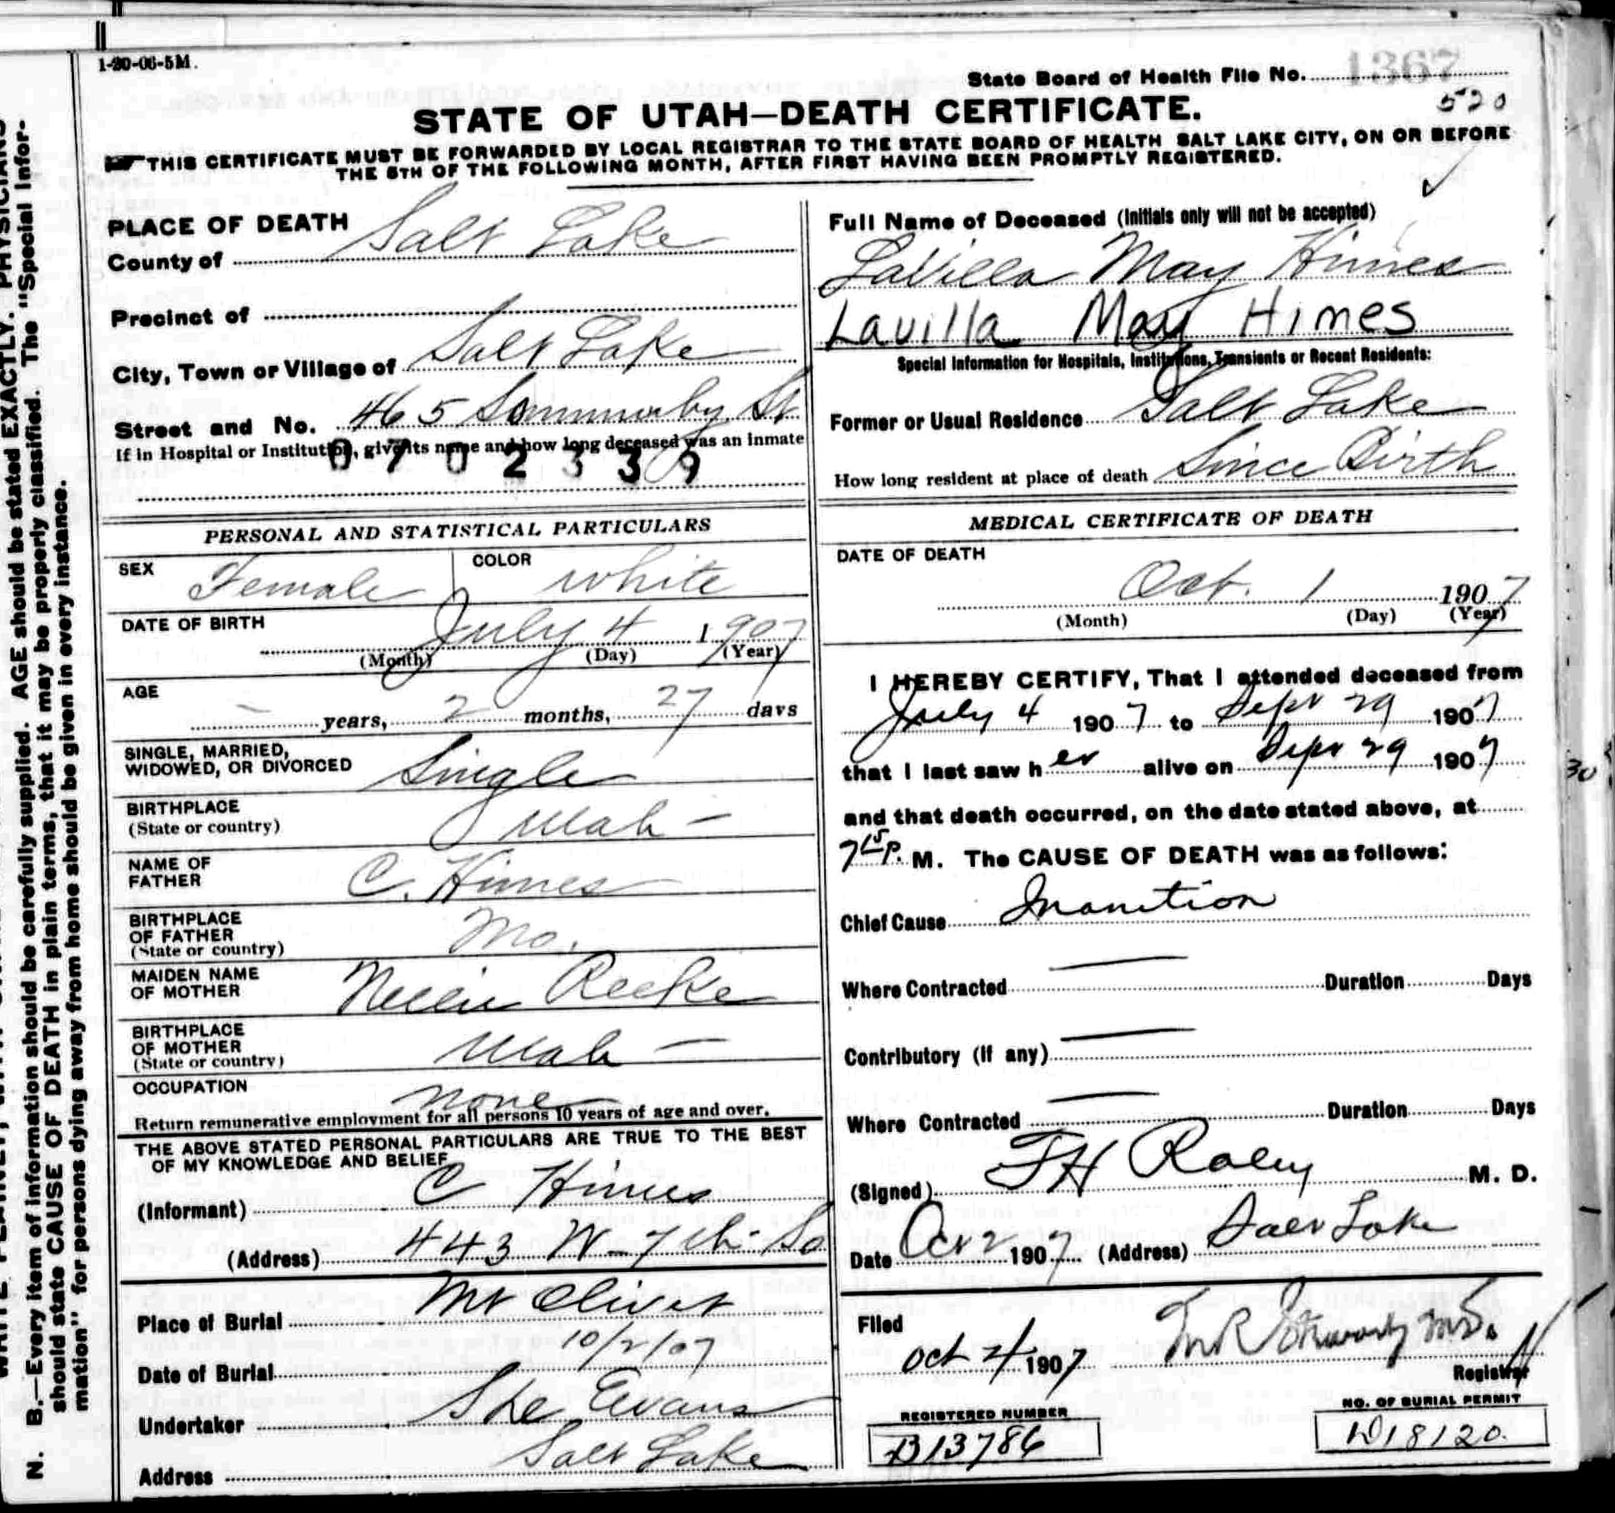 1-20-06-5M.
State Board of Health File No. 1367
520
STATE OF UTAH—DEATH CERTIFICATE.
THIS CERTIFICATE MUST BE FORWARDED BY LOCAL REGISTRAR TO THE STATE BOARD OF HEALTH SALT LAKE CITY, ON OR BEFORE
THE 5TH OF THE FOLLOWING MONTH, AFTER FIRST HAVING BEEN PROMPTLY REGISTERED.
PLACE OF DEATH
County of Salt Lake
Precinct of
City, Town or Village of Salt Lake
Street and No. 465 St
If in Hospital or Institution, give its name and how long deceased was an inmate
0702339
Full Name of Deceased (Initials only will not be accepted)
LaVilla May Himes
Lavilla May Himes
Special Information for Hospitals, Institutions, Transients or Recent Residents:
Former or Usual Residence Salt Lake
How long resident at place of death Since Birth
PERSONAL AND STATISTICAL PARTICULARS
SEX Female COLOR White
DATE OF BIRTH July 4 1907
(Month) (Day) (Year)
AGE - years, 2 months, 27 days
SINGLE, MARRIED,
WIDOWED, OR DIVORCED Single
BIRTHPLACE
(State or country) Utah —
NAME OF
FATHER C. Himes
BIRTHPLACE
OF FATHER
(State or country) Mo.
MAIDEN NAME
OF MOTHER Nellie
BIRTHPLACE
OF MOTHER
(State or country) Utah —
OCCUPATION none
Return remunerative employment for all persons 10 years of age and over.
THE ABOVE STATED PERSONAL PARTICULARS ARE TRUE TO THE BEST
OF MY KNOWLEDGE AND BELIEF
(Informant) C Himes
(Address) 443 W-7th So
Place of Burial Mt Olivet
Date of Burial 10/2/07
Undertaker Evans
Address Salt Lake
MEDICAL CERTIFICATE OF DEATH
DATE OF DEATH
Oct. 1 1907
(Month) (Day) (Year)
I HEREBY CERTIFY, That I attended deceased from
July 4 1907 to Sept 29 1907
that I last saw her alive on Sept 29 1907
and that death occurred, on the date stated above, at
7 15 P. M. The CAUSE OF DEATH was as follows:
Chief Cause Inanition
Where Contracted — Duration Days
Contributory (if any) —
Where Contracted — Duration Days
(Signed) F H Raley M. D.
Date Oct 2 1907 (Address) Salt Lake
Filed
Oct 4 1907 M.D.
Registrar
REGISTERED NUMBER
B13786
NO. OF BURIAL PERMIT
D18120.
30
N. B.—Every item of information should be carefully supplied. AGE should be stated EXACTLY. PHYSICIANS
should state CAUSE OF DEATH in plain terms, that it may be properly classified. The "Special Infor-
mation" for persons dying away from home should be given in every instance.